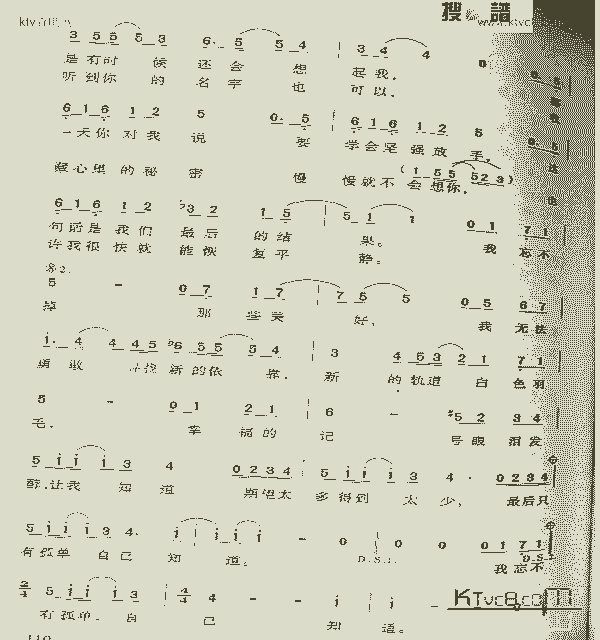 搜 谱
3 5 5 5 3 6· 5 5 4 | 3 4 4 0
是有时 候 还 会 想 起我.
听到你 的 名 字 也 可以.
6 1 6 1 2 5 0· 5 | 6 1 6 1 2 5 0 5
一天你 对我 说 要 学会坚 强放 手,
藏心里 的秘 密 慢 慢就不 会想你.
(1 5 5 5 2 3)
6 1 6 1 2 ♭3 2 1 5 | 5 1 1 0 1 7 1
句话是 我们 最后 的结 果。 我 忘不
许我很 快就 能恢 复平 静。
5 - 0 7 1 7 | 7 5 5 0 5 6 7
掉 那 些美 好, 我 无法
1· 4 4 4 5 ♭6 5 5 5 4 | 3 4 5 3 2 1 7 1
勇 敢 寻找 新的依 靠. 新 的轨道 白 色羽
5 - 0 1 2 1 | 6 - #5 2 3 4
毛. 幸 福的 记 号 眼 泪发
5 i i i 3 4 0 2 3 4 | 5 i i i 3 4 · 0 2 3 4
酵.让我 知 道 期望太 多得到 太 少, 最后只
5 i i i 3 4· i i i i - | 0 0 0 0 1 7 1
有孤单 自己 知 道。 D.S.1. 我忘不
D.S.
2/4 5 i i i 3 | 4/4 4 - - i | i -
有孤单. 自 己 知 道。
KTvc8.com
110